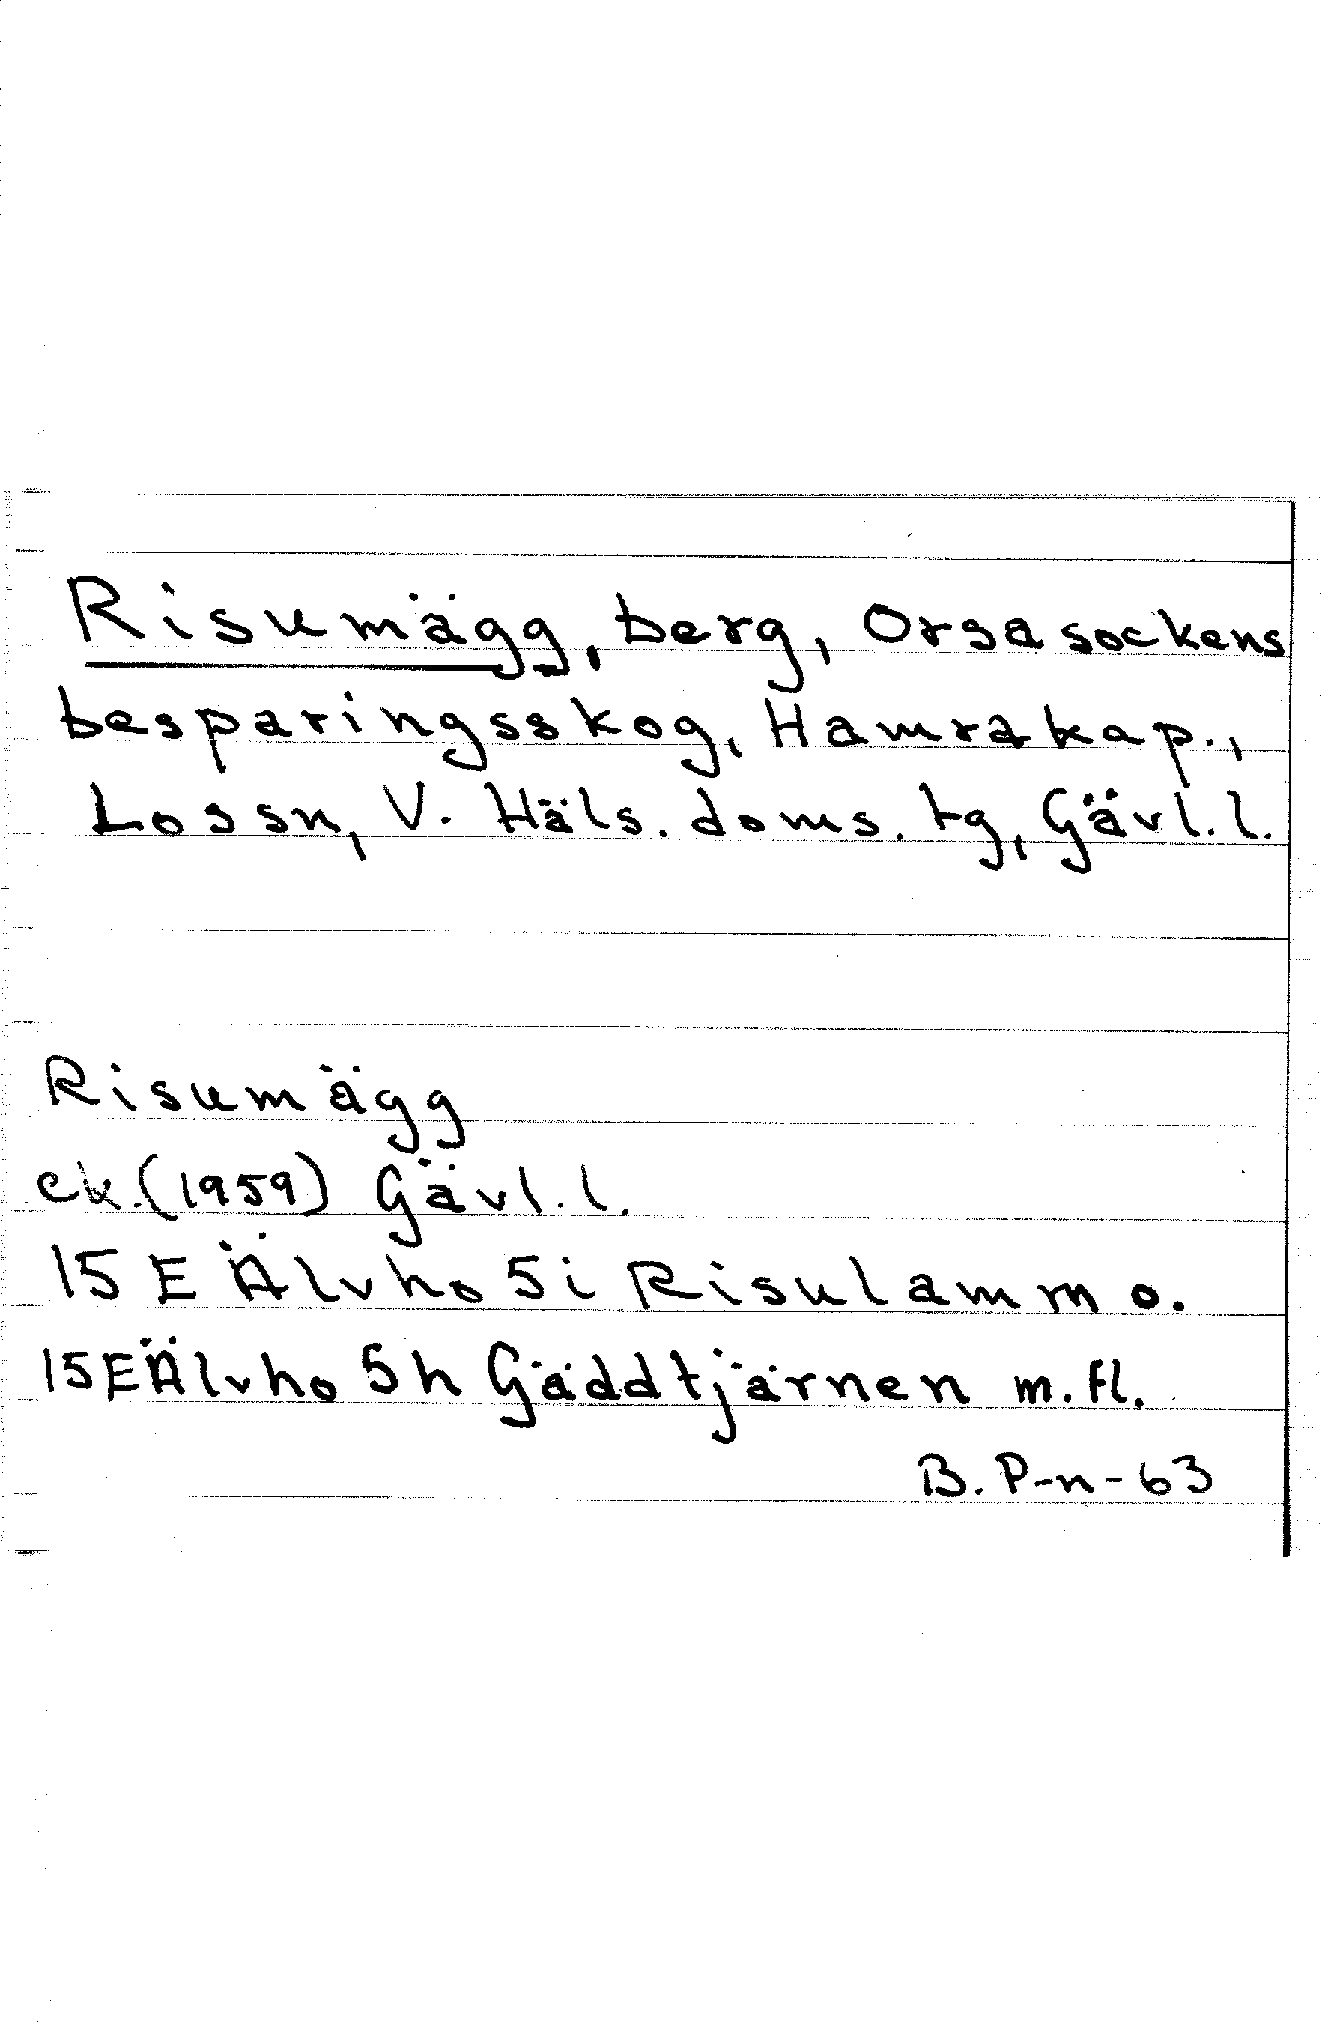 Risumägg, berg, Orsa sockens
besparingsskog, Hamra kap.,
Los sn, V. Häls. doms. tg, Gävl. l.
Risumägg
ek. (1959) Gävl. l.
15 E Älvho 5i Risulammo.
15E Älvho 5h Gäddtjärnen m. fl.
B. P-n-63